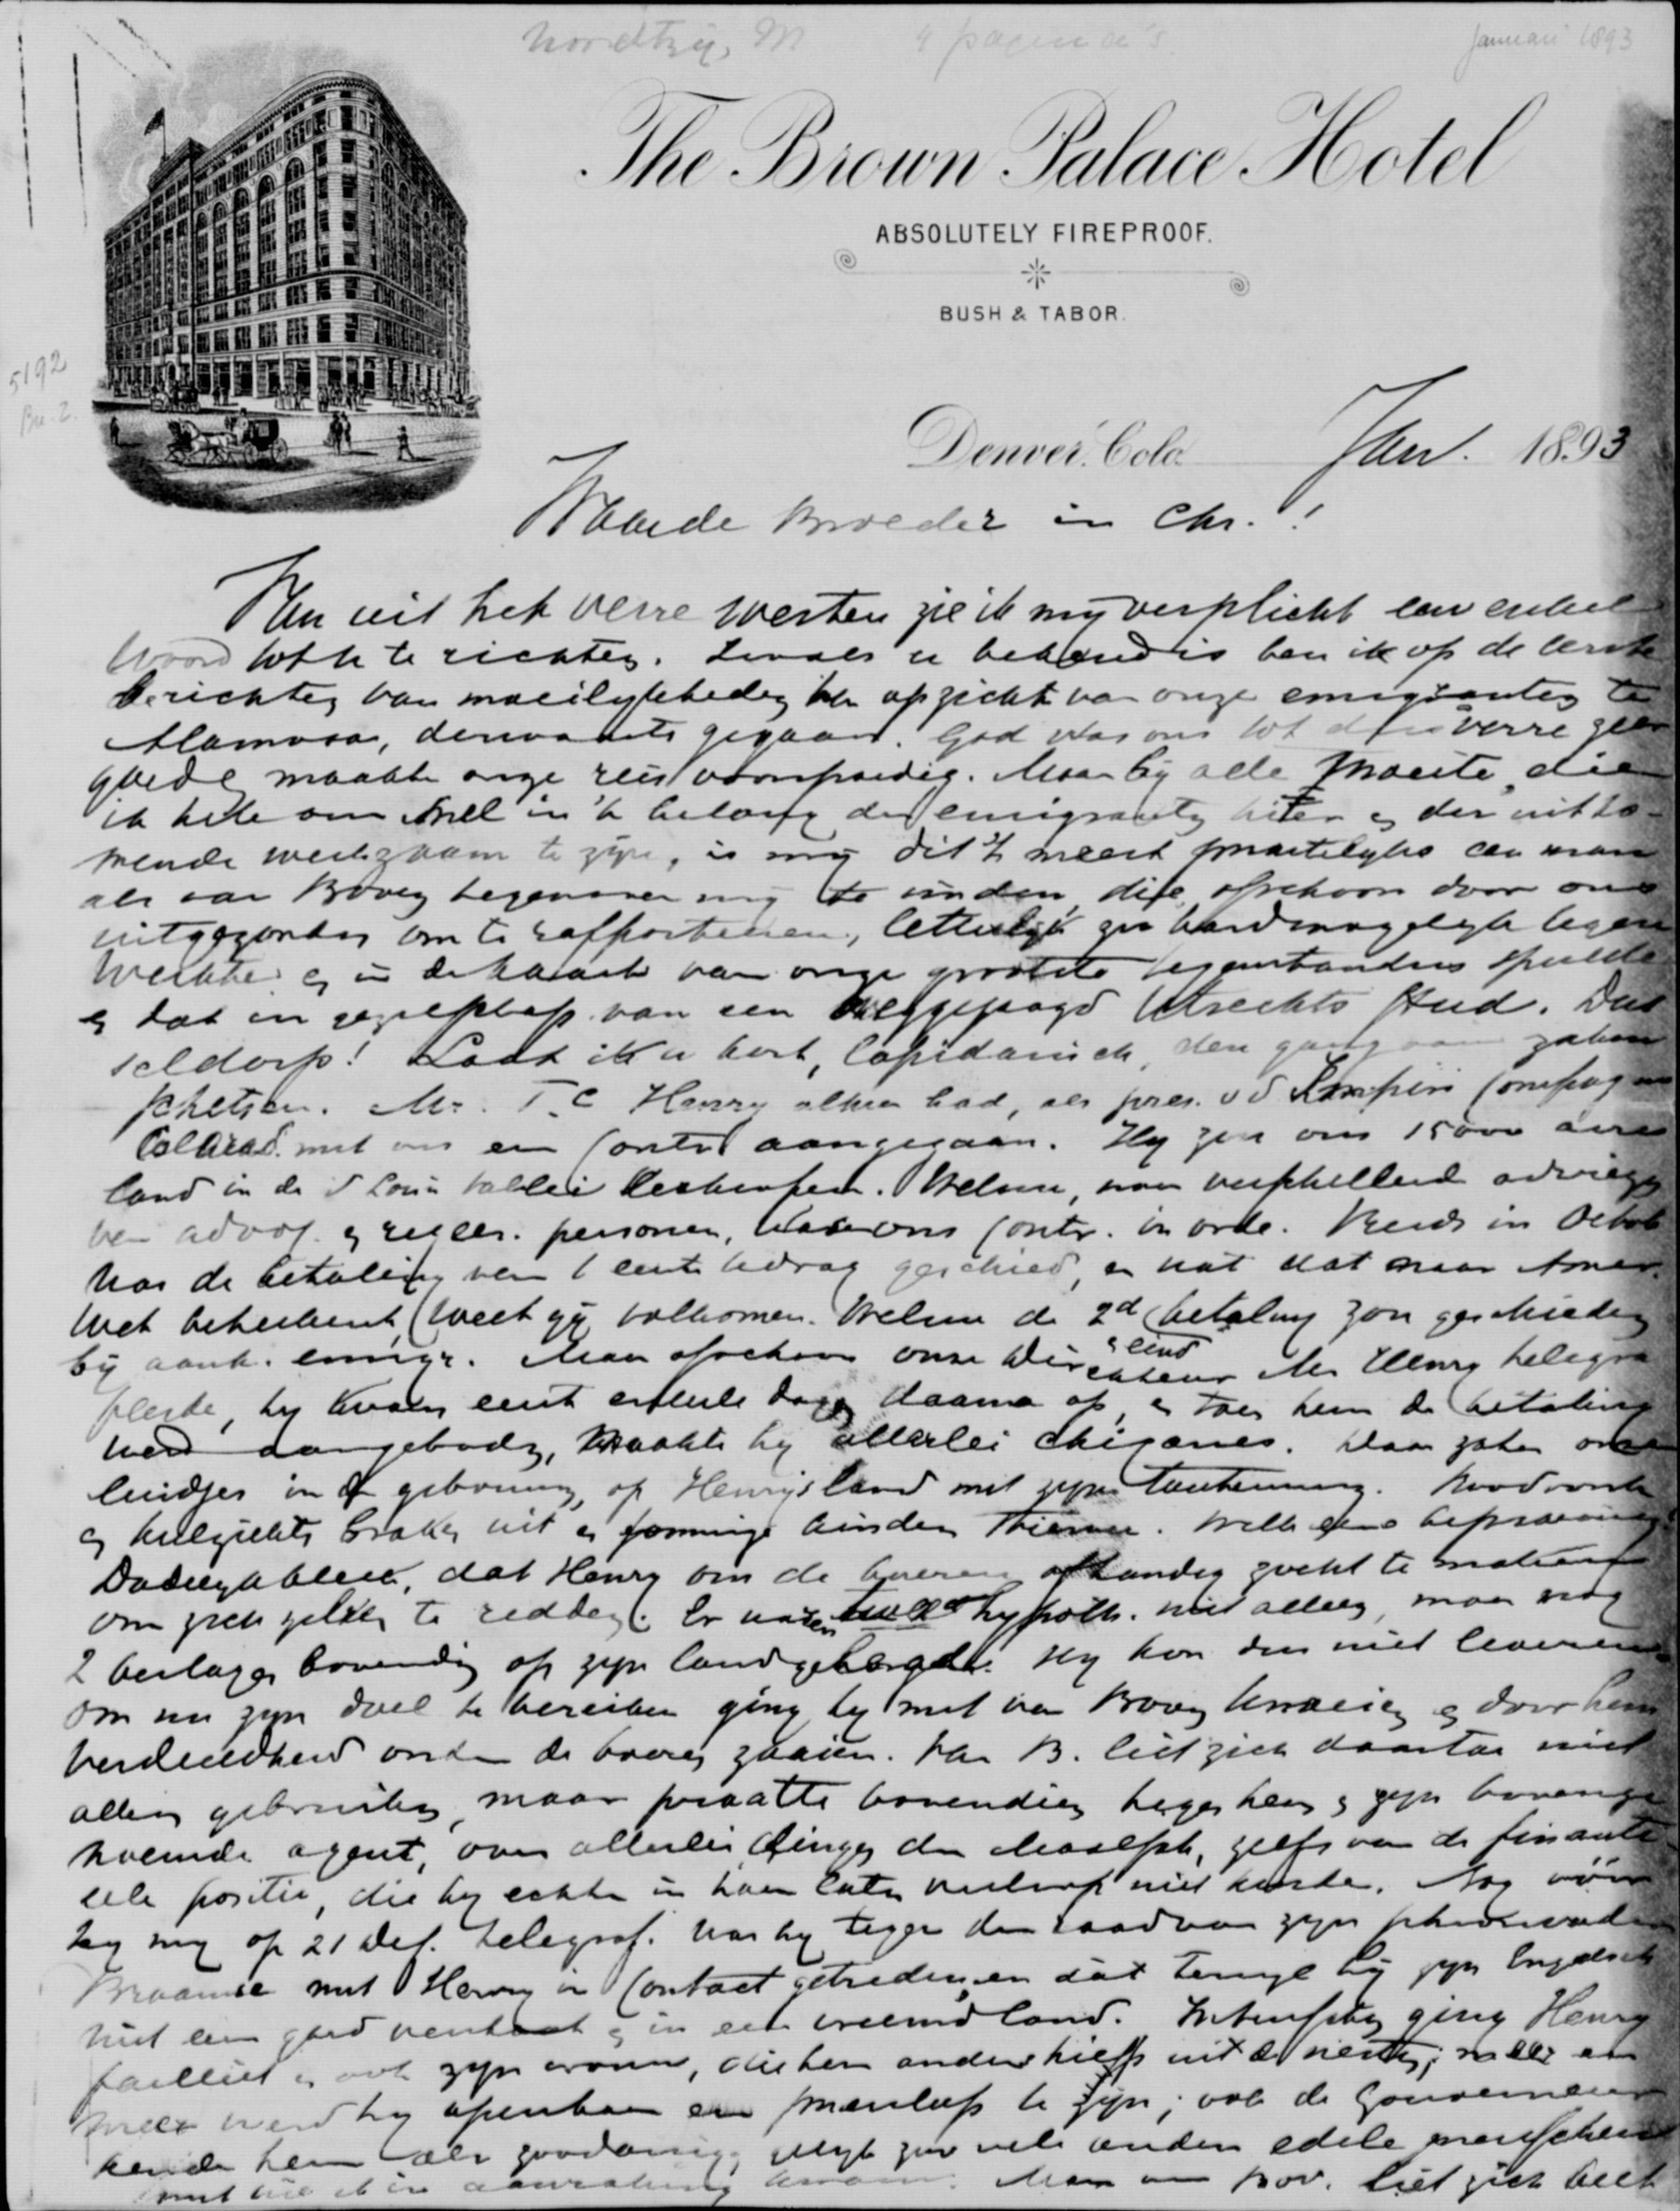 Noordtzij, M 4 pagina's Januari 1893
The Brown Palace Hotel
ABSOLUTELY FIREPROOF.
BUSH & TABOR.
5192
Denver, Colo. Jan. 1893
Waarde Broeder in Chr.!
Van uit het verre westen zie ik my verplicht een enkel
woord tot U te richten. Zooals u bekend is ben ik op de eerste
berichten van moeilykheden ten opzichte van onze emigranten te
Alamosa, derwaarts gegaan. God was ons tot dus verre zeer
goed maakte onze reis voorspoedig. Maar by alle moeite, die
ik hebe om snel in 't belang der emigranten hier en der uitko-
mende werkzaam te zyn, is my dit 't meest smartelyks een man
als van Bovey tegenover my te vinden, die, ofschoon door ons
uitgezonden om te rapporteeren, letterlyk zoo hard mogelyk tegen
werkte en in de kaart van onze grootste tegenstanders speelde
en dat in gezelschap van een weggejaagd Utrechts Stud. Dus
seldorp! Laat ik u kort, lapidarisch, den gang van zaken
schetsen. Mr. T. C Henry alhier had, als pres. v d Empire Compag
Colorad. met ons een Contr aangegaan. Hy zou ons 15000 acres
land in de S Louis vallei verkoopen. Welnu, naar verschillend adviezen
van advoc. en regeer. personen, was ons Contr. in orde. Reeds in Octob
was de betaling van 1 cents bedrag geschied, en wat dat naar Amer.
wet beteekent, weet gy volkomen. Welnu de 2d betaling zou geschieden
by aank. emigr. Maar ofschoon onze Directeur Mr Henry telegra
feerde, hy kwam eerst enkele dagen daarna op, en toen hem de betaling
werd aangeboden, maakte hy allerlei chicanes. Daar zaten onze
luidjes in de gebouwen, op Henry's land met zyne toestemming. Roodvonk
en keelziekte braken uit en sommige kinderen stierven. Welk eene beproeving!
Dadelyk bleek, dat Henry om de boeren afhandig zocht te maken
om zich zelven te redden. Er waren twee hypoth. niet alleen, maar nog
2 beslagen bovendien op zyn land gelegd. Hy kon dus niet leveren.
om nu zyn doel te bereiken ging hy met van Bovey knoeien en door hem
verdeeldheid onder de boeren zaaien. Van B. liet zich daartoe niet
alleen gebruiken, maar praatte bovendien tegen hem en zyn bovenge
noemde agent, over allerlei dingen der Maatsch., zelfs van de finantie
eele positie, die hy echter in haar later verloop niet kende. Nog vóór
hy my op 21 Dec. telegraf. was hy tegen den raad van zyn schoonvader
met Henry in Contact getreden, en dat terwyl hy zyn Engelsch
niet eens goed verstaat en in een vreemd land. Intusschen ging Henry
failliet en ook zyn vrouw, die hem anders hielp uit de nesten; meer en
meer werd hy openbaar een smeerlap te zyn; ook de Gouverneur
kende hem als zoodanig, gelyk zoo vele andere edele menschen
met wie ik in aanraking kwam. Maar van Bov. liet zich beet